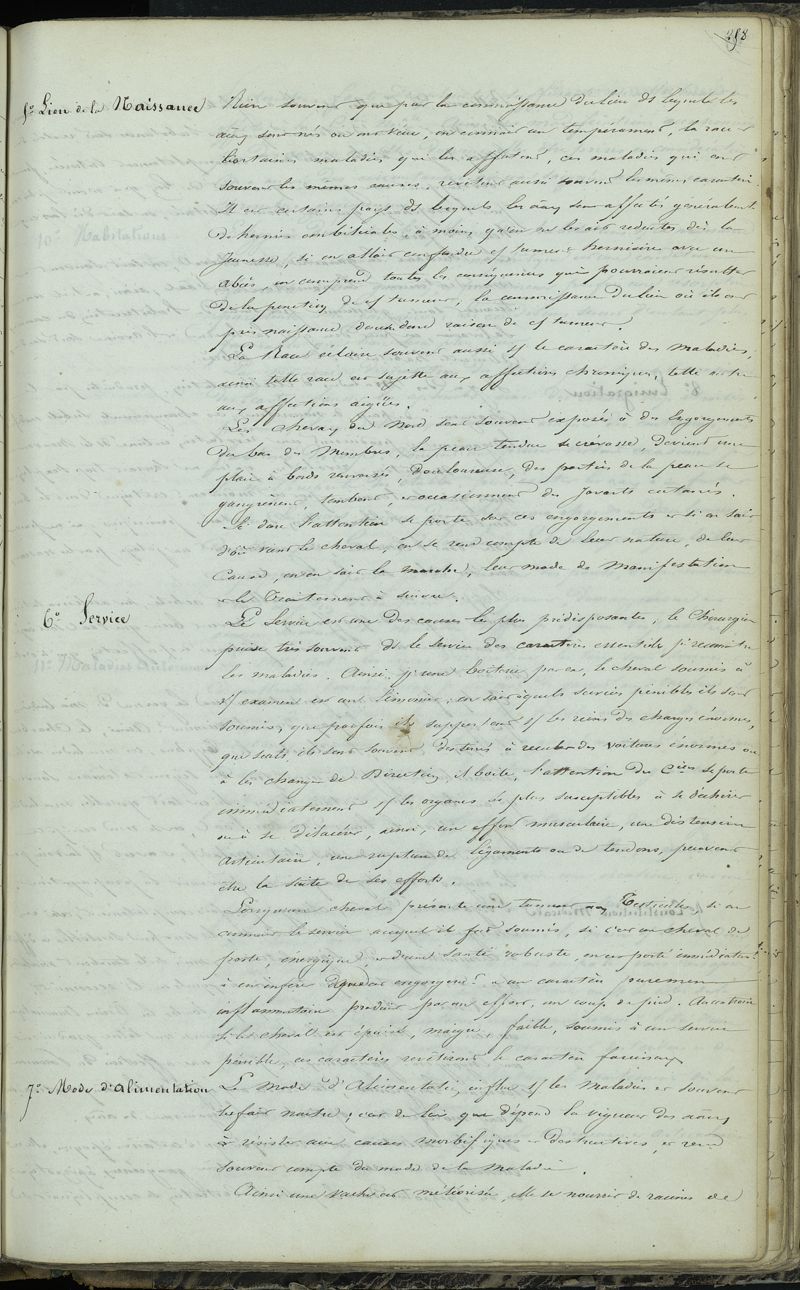 298
5º Lieu de la Naissance
Bien souvent que par la connaissance du lieu ds lequel les
aãx sont nés ou ont vécu, on connait un tempérament, la race
Certaines maladies qui les affectent, ces maladies qui ont
souvent les mêmes causes, revêtent aussi souvent les mêmes caractères.
Il est certains pays ds lesquels les aãx sont affectés généralemt
de hernies ombilicales, à moins qu'on ne les ait réduites dès la
jeunesse, si on allait confondre cette tumeur herniaire avec un
abcès, on comprend toutes les conséquences qui pourraient résulter
de la ponction de cette tumeur, la connaissance du lieu où ils ont
pris naissance donne donc raison de cette tumeur.
La Race éclaire souvent aussi sur le caractère des maladies,
ainsi telle race est sujette aux affections chroniques, telle autre
aux affections aigües.
Les chevaux du Nord sont souvent exposés à des Engorgements
du bas des Membres, la peau tendue se crevasse, devient une
plaie à bords renversés, Douloureuse, des parties de la peau se
gangrènent, tombent, et occasionnent des Javarts cutanés.
Si donc l'attention se porte sur ces engorgements et si on sait
d'où vient le cheval, on se rend compte de leur nature, de leur
Cause, on en sait la marche, leur mode de Manifestation
et le Traitement à suivre.
6º Service
Le Service est une des causes les plus prédisposantes, le Chirurgien
puise très souvent ds le service des caractères essentiels pr reconnaitre
les maladies. Ainsi, pr une boiterie par ex, le cheval soumis à
son examen est un limonier, on sait à quels services pénibles ils sont
soumis, que parfois ils supportent sur les reins des charges énormes,
que seuls, ils sont souvent destinés à reculer des voitures énormes ou
à les changer de Direction, il boite, l'attention du Cien se porte
immédiatement sur les organes les plus susceptibles à se déchirer
ou à se dilacérer, ainsi, un effort musculaire, une distension
articulaire, une rupture de ligaments ou de tendons, peuvent
être la suite de ses efforts.
Lorsqu'un cheval présente une tumeur aux Testicules, si on
connait le service auquel il fut soumis, si c'est un cheval de
poste, énergique et d'une santé robuste, on est porté immédiatemt
à en inférer que cet engorgemt a un caractère purement
inflammatoire produit par un effort, un coup de pied. Au contraire
si le cheval est épuisé, maigre, faible, soumis à un service
pénible, ces caractères revêtiront le caractère farcineux
7º Mode d'alimentation
Le mode d'Alimentation influe sur les Maladies et souvent
les fait naitre, c'est de lui que dépend la vigueur des aãx,
à résister aux causes morbifiques et destructives, et rend
souvent compte du mode de la maladie.
Ainsi une vache est météorisée, elle se nourrit de racines de